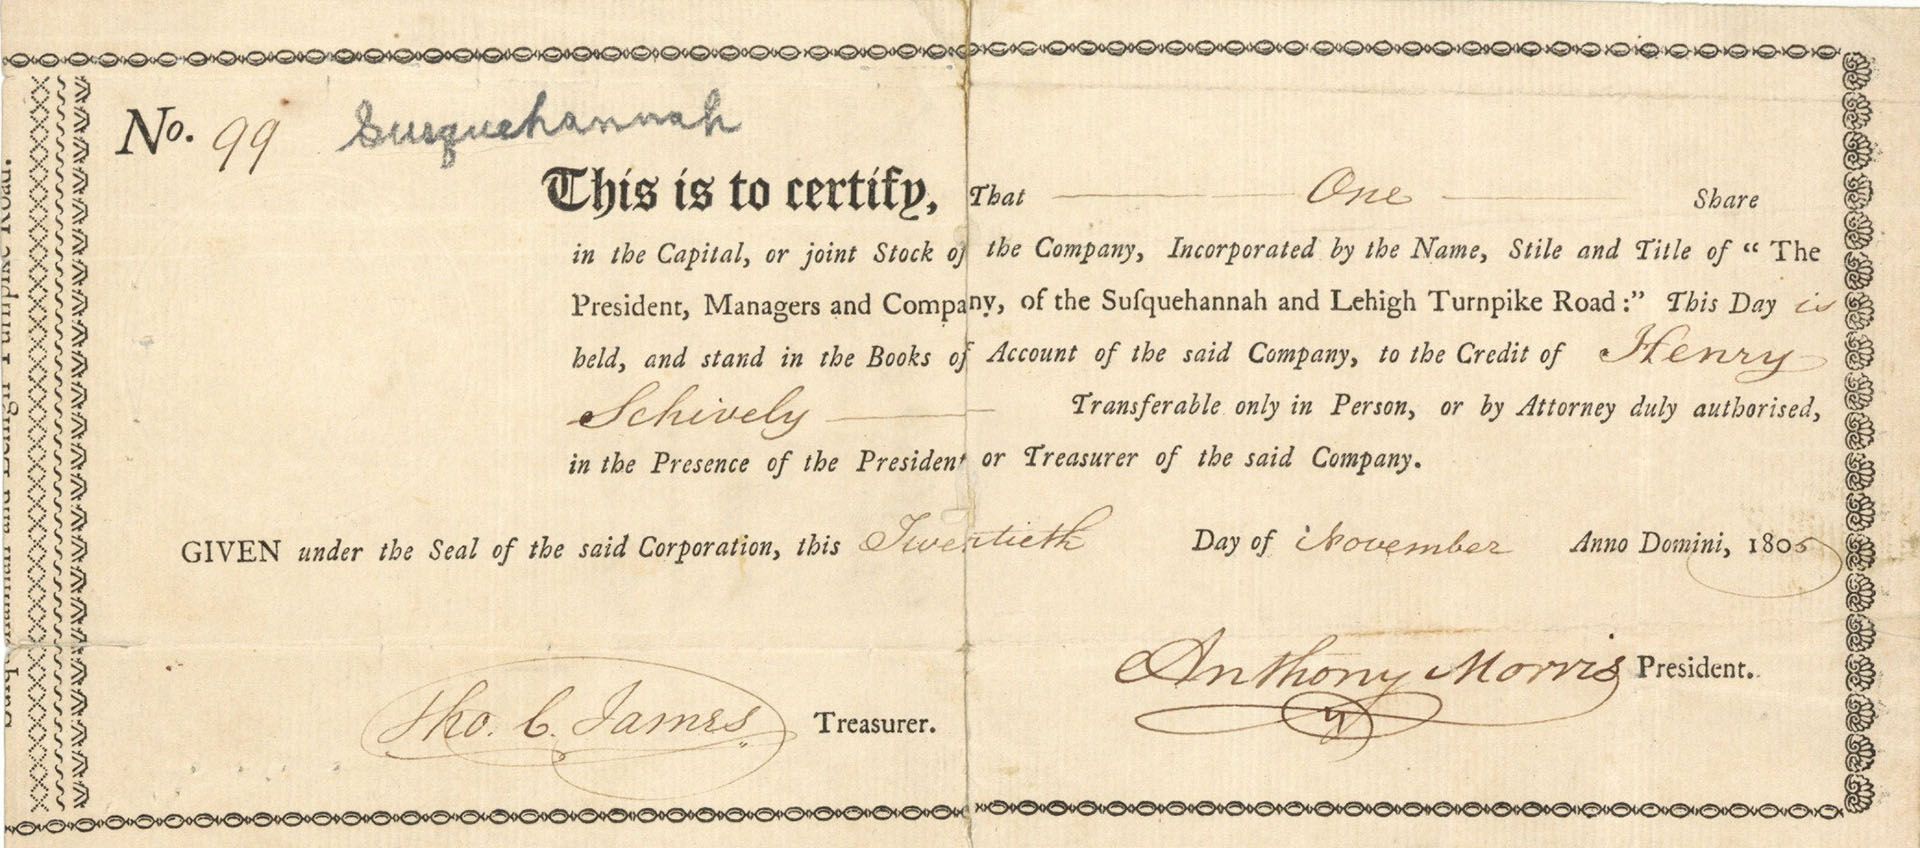 No. 99 Susquehannah
This is to certify, That One Share
in the Capital, or joint Stock of the Company, Incorporated by the Name, Stile and Title of “ The
President, Managers and Company, of the Suſquehannah and Lehigh Turnpike Road:” This Day is
held, and stand in the Books of Account of the said Company, to the Credit of Henry
Schively Transferable only in Person, or by Attorney duly authorised,
in the Presence of the President or Treasurer of the said Company.
GIVEN under the Seal of the said Corporation, this Twentieth Day of November Anno Domini, 1805
Anthony Morris President.
Tho. C. James Treasurer.
and Lehigh Turnpike Road.